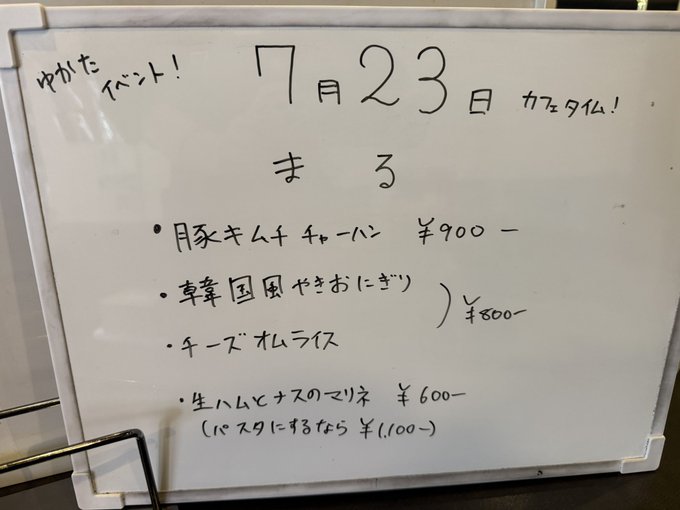 ゆかた
イベント!
7月23日 カフェタイム!
まる
・豚キムチチャーハン ¥900-
・韓国風やきおにぎり
)¥800-
・チーズオムライス
・生ハムとナスのマリネ ¥600-
(パスタにするなら ¥1,100-)